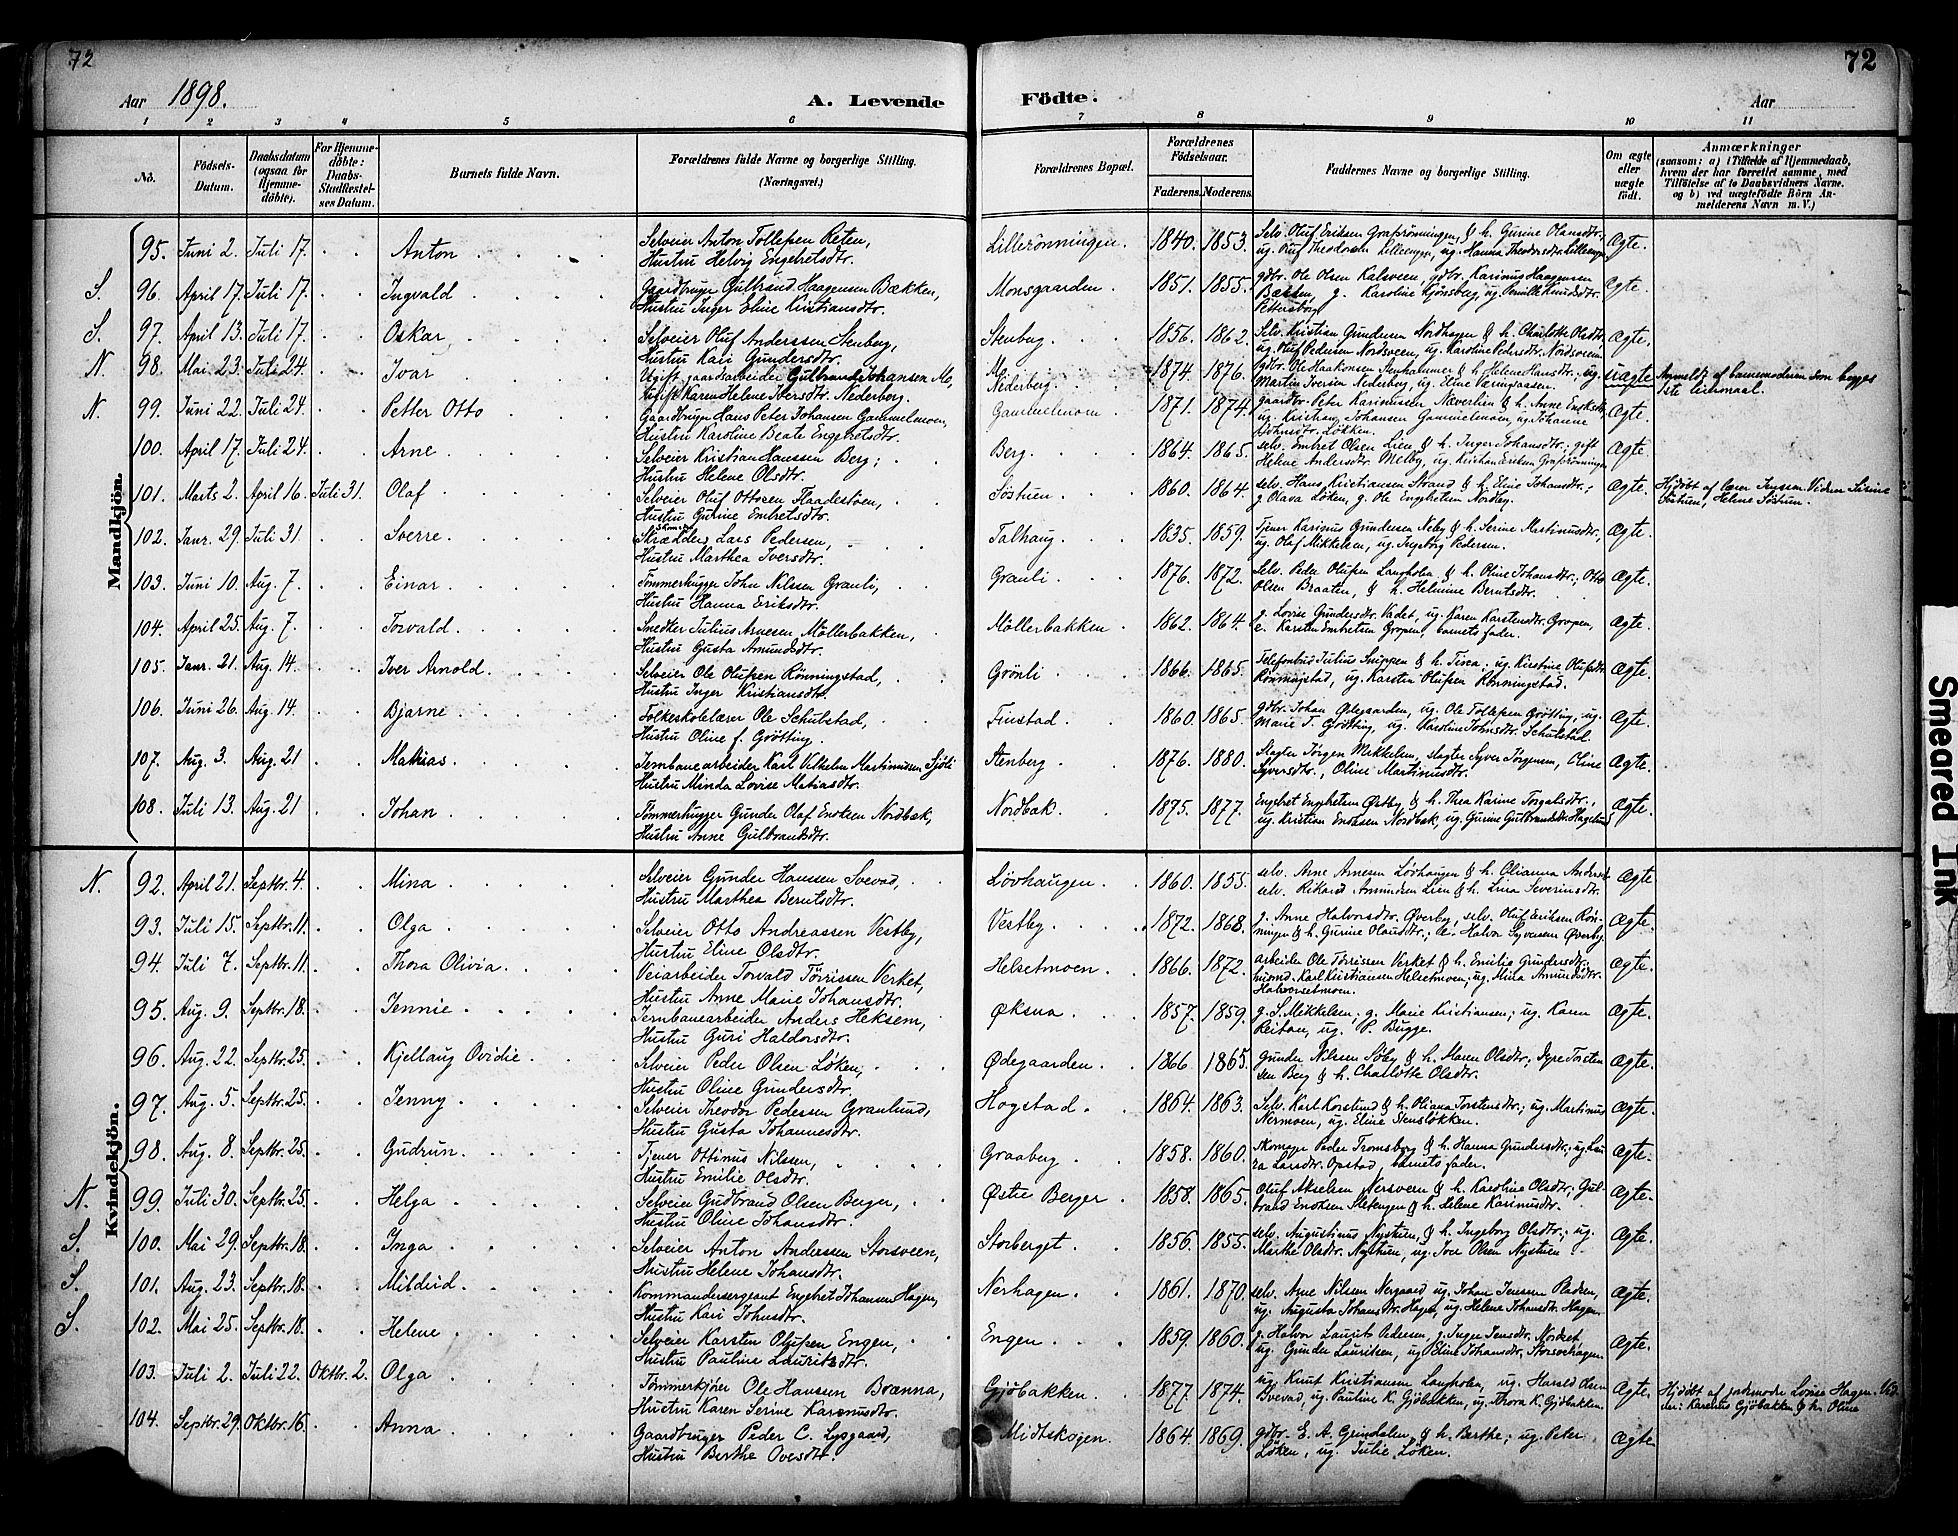 72
72
Aar 1898.
A. Levende Födte.
Aar
1 2 3 4 5 6 7 8 9 10 11
No.
Födsels-Datum.
Daabsdatum (ogsaa for Hjemme-döbte).
For Hjemme-döbte: Daabs-Stadfæstel-ses Datum.
Barnets fulde Navn.
Forældrenes fulde Navne og borgerlige Stilling. (Næringsvei.)
Forældrenes Bopæl.
Forældrenes Födselsaar.
Faderens. Moderens.
Faddernes Navne og borgerlige Stilling.
Om ægte eller uægte født.
Anmærkninger (saasom: a) i Tilfælde af Hjemmedaab, hvem der har forrettet samme, med Tilföielse af to Daabsvidners Navne. og b) ved uægtefödte Börn An-melderens Navn m. V.)
Mandkjön.
95. Juni 2. Juli 17. Anton Selveier Anton Tollefsen Reten, Hustru Helvig Engebretsdtr. Lillerönningen. 1840. 1853. Ægte.
S. 96. April 17. Juli 17. Ingvald Gaardbruger Gulbrand Haagensen Bækken, Hustru Inger Eline Kristiansdtr. Monsgaarden. 1851. 1855. gdbr. Ole Olsen Kalsveen, gdbr. Karinus Haagensen Bækken, g. Karoline Kjönsberg, ug. Pernille Knudsdtr. Pettersborg Ægte.
S. 97. April 13. Juli 17. Oskar Selveier Oluf Anderssen Stenberg, Hustru Kari Gundersdtr. Stenberg 1856. 1862. Selv. Kristian Gundersen Nordhagen & h. Charlotte Olsdtr, ug. Oluf Pedersen Nordsveen, ug. Karoline Pedersdtr. Nordsveen Ægte.
N. 98. Mai 23. Juli 24. Ivar Ugift gaardsarbeider Gulbrand Johansen Mo, Ugift Karen Helene Iversdtr. Nederberg. Mo Nederberg. 1874. 1876. gdbr. Ole Haakonsen Neuhammer & h. Helene Hansdtr; ug. Martin Iversen Nederberg, ug. Eline Uægte Anmeldt af barnemoderen som begges 1ste leiermaal.
N. 99. Juni 22. Juli 24. Petter Otto Gaardbruger Hans Peter Johansen Gammelmoen, Hustru Karoline Beate Engebretsdtr. Gammelmoen 1871. 1874. gaardbr. Peter Karinussen Næverlien & h. Anne ug. Kristian Johansen Gammelmoen, ug. Johanne Johnsdtr. Løkken. Ægte.
100. April 17. Juli 24. Arne Selveier Kristian Hanssen Berg; Hustru Helene Olsdtr. Berg. 1864. 1865. selv. Embret Olsen Lien & h. Inger Johansdtr.; gift Helene Andersdtr. Melby, ug. Kristian Eriksen Ægte.
101. Marts 2. April 16. Juli 31. Olaf Selveier Oluf Ottosen Flaadestöen, Hustru Gurine Embretsdtr. Söstuen 1860. 1864. selv. Hans Kristiansen Strand & h. Eline Johansdtr.; g. Olava Løken, g. Ole Engebretsen Nordby. Ægte. Hjdöbt af lærer Vidner Serine Söstuen, Helene Söstuen
102. Janr. 29. Juli 31. Sverre Skrædder Lars Pedersen, Hustru Marthea Iversdtr. Talhaug 1835. 1859. Tjener Karinus Gundersen Neby & h. Serine Martinusdtr., ug. Olaf Mikkelsen, ug. Ingeborg Pedersen. Ægte.
103. Juni 10. Aug. 7. Einar Tömmerhugger John Nilssen Granli, Hustru Hanna Eriksdtr. Granli 1876. 1872. Selv. Peder Olufsen Langholen & h. Oline Johansdtr.; Otto Olsen Braaten, & h. Helmine Berntsdtr. Ægte.
104. April 25. Aug. 7. Torvald Snedker Julius Arnesen Möllerbakken, Hustru Gusta Amundsdtr. Möllerbakken 1862. 1864. g. Lovise Gundersdtr. Vadet, ug. Karen Karstensdtr. Gropen, e. Karsten Embretsen Gropen, barnets fader. Ægte.
105. Janr. 21. Aug. 14. Iver Arnold Selveier Ole Olufsen Rönningstad, Hustru Inger Kristiansdtr. Grönli 1866. 1865. Telefonbud Julius Snippen & h. Tina; ug. Kirstine Olufsdtr. Rönningstad, ug. Karsten Olufsen Rönningstad. Ægte.
106. Juni 26. Aug. 14. Bjarne Folkeskolelærer Ole Schulstad, Hustru Oline f. Grötting. Finstad 1860. 1865. gdbr. Johan Ødegaarden, ug. Ole Tollefsen Grötting, ug. Marie T. Grötting, ug. Karoline Johnsdtr. Schulstad. Ægte.
107. Aug. 3. Aug. 21 Mathias Jernbanearbeider Karl Vilhelm Martinussen Sjöli Hustru Minda Lovise Matiasdtr. Stenberg 1876. 1880. Slagter Jörgen Mikkelsen, slagter Syver Jörgensen, Oline Syversdtr., Oline Martinusdtr. Ægte.
108. Juli 13. Aug. 21 Johan Tömmerhugger Gunder Olaf Eriksen Nordbæk, Hustru Anne Gulbrandsdtr. Nordbæk 1875. 1877. Engebret Engebretsen Ørsby & h. Thea Karine Torgalsdtr.; ug. Kristian Eriksen Nordbæk, ug. Gurine Gulbrandsdtr. Ægte.
Kvindekjön.
N. 92. April 21. Septbr. 4. Mina Selveier Gunder Hanssen Svevad, Hustru Marthea Berntsdtr. Lövhaugen 1860. 1855. selv. Arne Arnesen Lövhaugen & h. Olianna Andersd. selv. Rikard Amundsen Lien & h. Lina Severinsdtr. Ægte
93. Juli 15. Septbr. 11. Olga Selveier Otto Andreassen Vestby, Hustru Eline Olsdtr. Vestby 1872. 1868. g. Anne Halvorsdtr. Øverby, selv. Oluf Eriksen Rön-ningen & h. Gurine Olausdtr.; e. Halvor Syversen Øverby. Ægte.
94. Juli 7. Septbr. 11. Thora Olivia Veiarbeider Torvald Törrissen Verket, Hustru Anne Marie Johansdtr. Helsetmoen 1866. 1872. arbeider Ole Törrissen Verket & h. Emilie Gundersdtr.; Karl Kristiansen Helsetmoen; ug. Mina Amundsdtr. Halvorsetmoen. Ægte.
95. Aug. 9. Septbr. 18. Jennie Jernbanearbeider Anders Heksem, Hustru Guri Haldorsdtr. Øksna 1857. 1859. g. S. Mikkelsen, g. Marie Kristiansen; ug. Karen Reitan, ug. P. Bugge. Ægte.
96. Aug. 22. Septbr. 25. Kjellaug Ovidie Selveier Peder Olsen Løken, Hustru Oline Gundersdtr. Ødegaarden 1866 1865. Gunder Nilsen Söby & h. Maren Olsdtr.; Dyre Torsten-sen Berg & h. Charlotte Olsdtr. Ægte.
97. Aug. 5. Septbr. 25. Jenny Selveier Theodor Pedersen Granlund, Hustru Gusta Johannesdtr. Hogstad 1864. 1863. Selv. Karl Korslund & h. Oliana Torstensdtr.; ug. Martinus Nermoen, ug. Eline Stenslökken. Ægte.
98. Aug. 8. Septbr. 25. Gudrun Tjener Ottinus Nilssen, Hustru Emilie Olsdtr. Graaberg 1858. 1860. Skomager Peder Tromsberg & h. Hanna Gundersdtr.; ug. Lau-ra Larsdtr. Opstad, barnets fader. Ægte.
N. 99. Juli 30. Septbr. 25. Helga Selveier Gudbrand Olsen Berger, Hustru Oline Johansdtr. Østre Berger 1858. 1865. Oluf Akselsen Nersveen & h. Karoline Olsdtr; Gul-brand Eriksen Sletengen & h. Helene Karinusdtr. Ægte.
S. 100. Mai 29. Septbr. 18. Inga Selveier Anton Anderssen Storsveen, Hustru Helene Johansdtr. Storberget 1856. 1855. selv. Augustinus Nystuen, & h. Ingeborg Olsdtr.; ug. Marthe Olsdtr. Nystuen, ug. Iver Olsen Nystuen. Ægte.
S. 101. Aug. 23. Septbr. 18. Mildrid Kommandersergeant Engebret Johansen Hagen, Hustru Kari Johnsdtr. Nerhagen 1861. 1870. selv. Arne Nilsen Nergaard ug. Johan Jenssen Pladsen, ug. Augusta Johansdtr. Hagen, ug. Helene Johansdtr. Hagen. Ægte.
S. 102. Mai 25. Septbr. 18. Helene Selveier Karsten Olufsen Engen, Hustru Pauline Lauritsdtr. Engen 1859. 1860. g. Halvor Laurits Pedersen, g. Inger Jensdtr. Nordset ug. Gunder Lauritsen, ug. Eline Johansdtr. Storsvehagen. Ægte.
103. Juli 2. Juli 22. Oktbr. 2. Olga Tömmerkjører Ole Hansen Brænna, Hustru Karen Serine Karinusdtr. Gjöbakken 1877. 1874. ug. Knut Kristiansen Langholen, ug. Harald Olsen Svevad, ug. Pauline K. Gjöbakken, ug. Thora K. Gjöbakken. Ægte. Hjdöbt af jordmoder Lovise Hagen. Vid-ner: Karinus Gjöbakken & h. Oline
104. Septbr. 29. Oktbr. 16. Anna Gaardbruger Peder C. Lysgaard, Hustru Berthe Ovesdtr. Midtskogen 1864. 1869. gdbr. E. A. Grindalen, & h. Berthe; ug. Peter Löken, ug. Julie Löken. Ægte
Smeared Ink